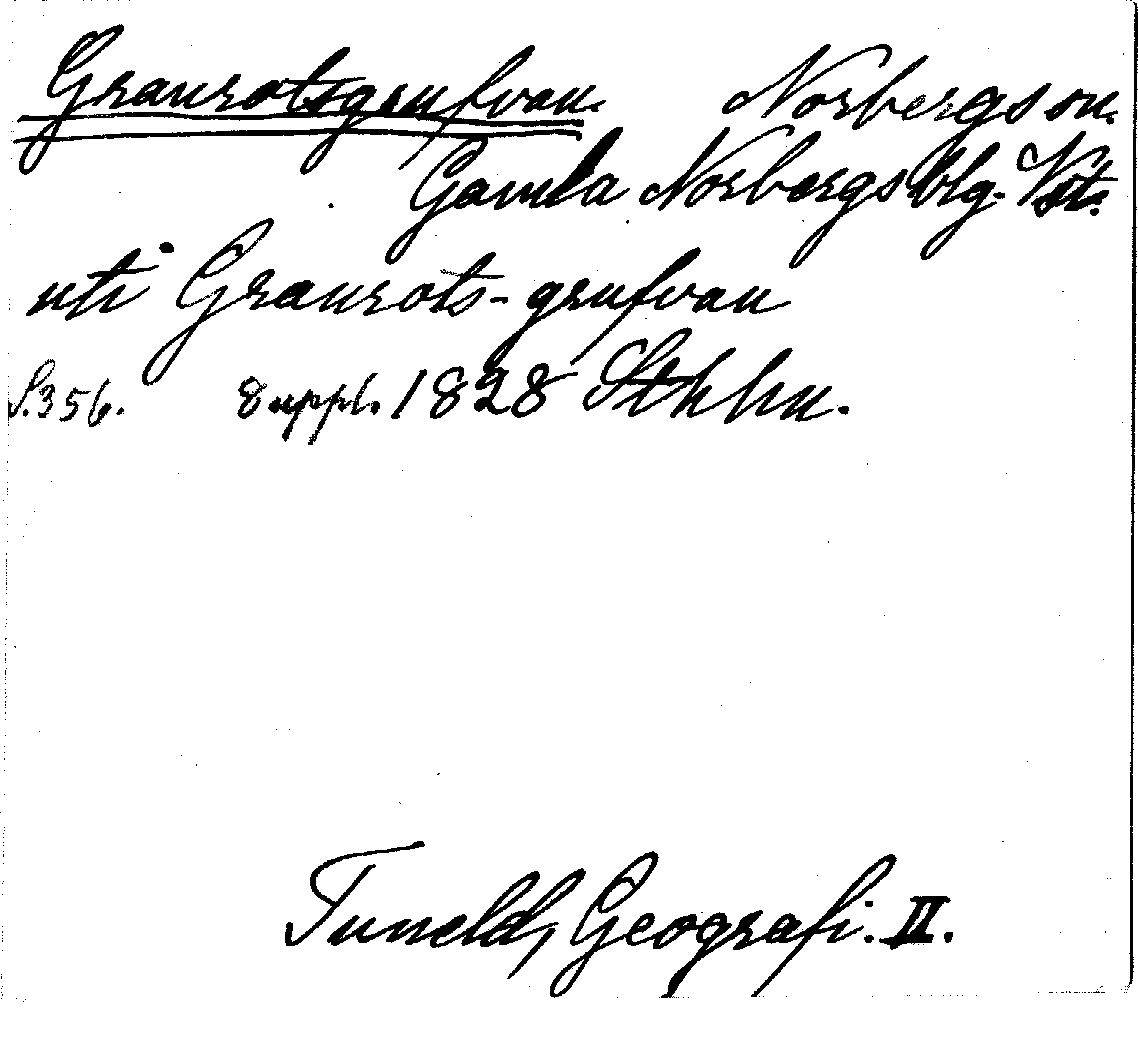 Granrotsgrufvan. Norbergs sn.
Gamla Norbergs blg. Vstm.
uti Granrots-grufvan
S. 356. 8 uppl. 1828 Sthlm.
Tuneld, Geografi. II.